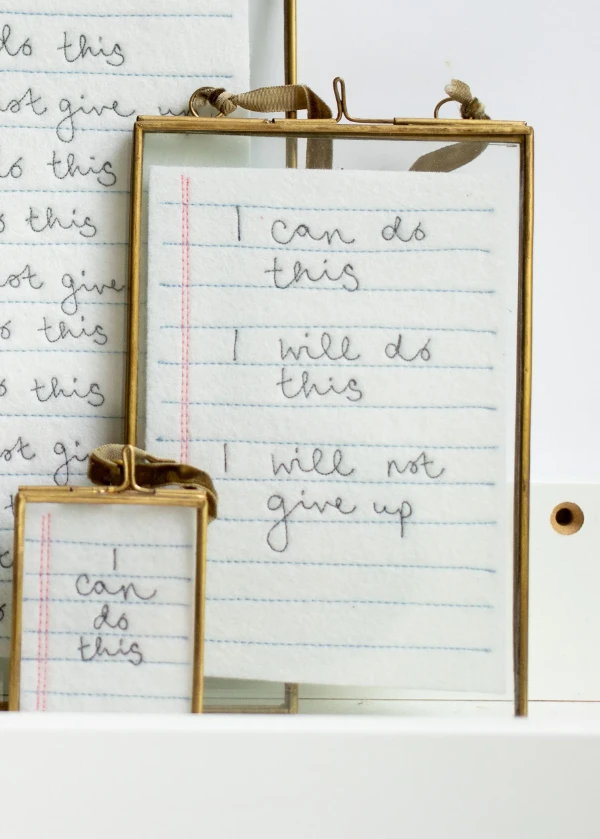 do this
not give up
do this
do this
not give
do this
do this
not gi
I can do
this
I will do
this
I will not
give up
I
can
do
this